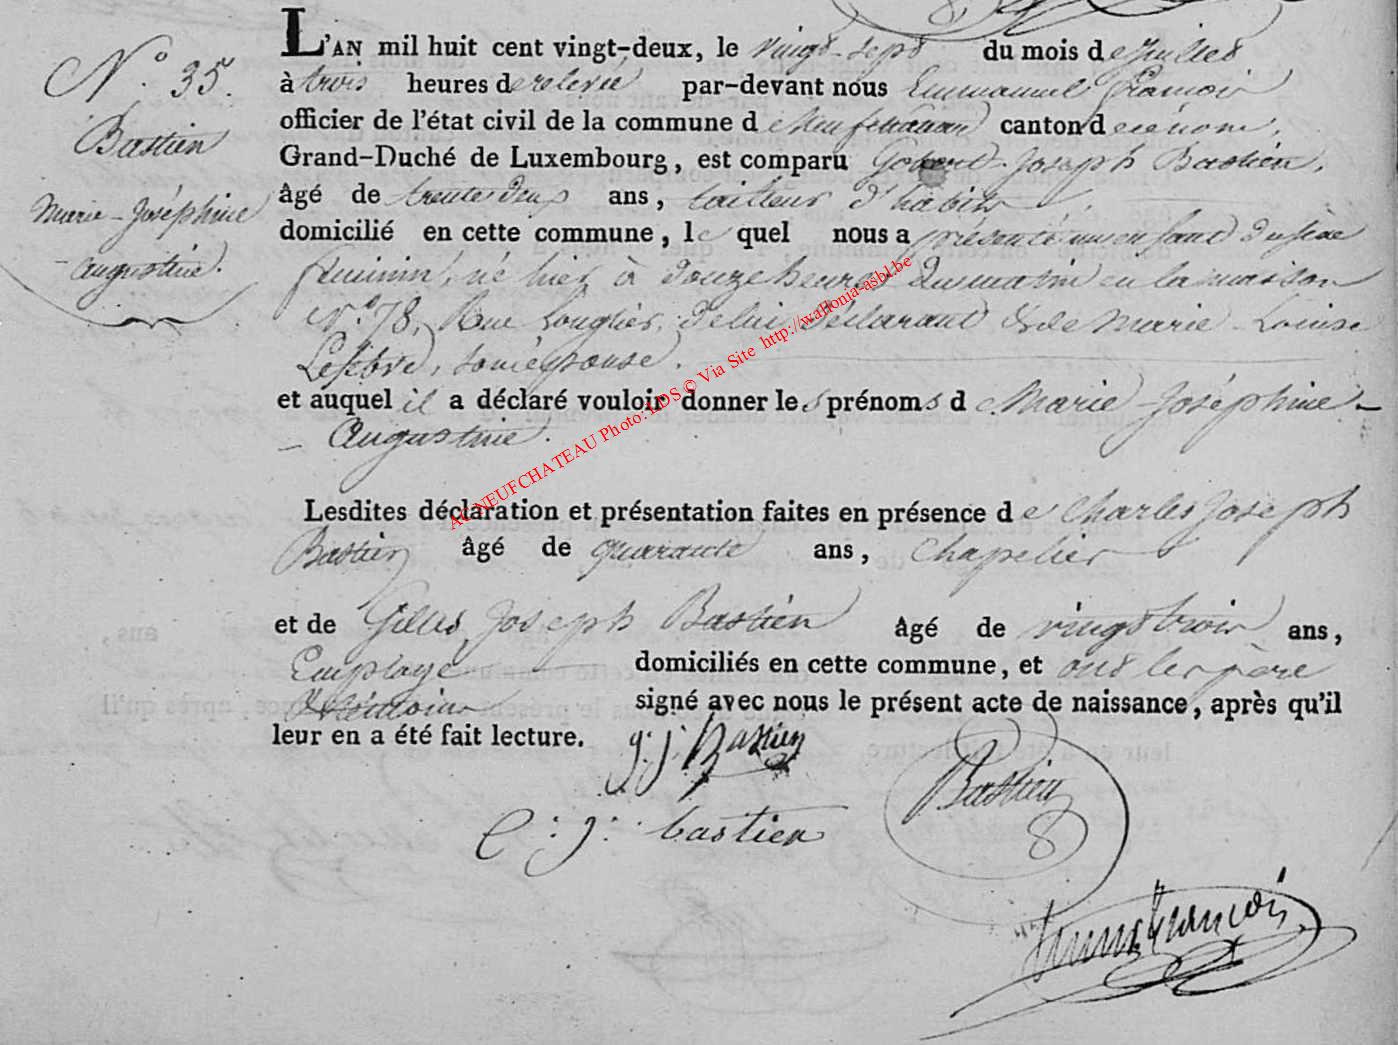 N.° 35.
Bastien
Marie-Joséphine
Augustine.
L'AN mil huit cent vingt-deux, le vingt-sept du mois de Juillet
à trois heures de relevée par-devant nous Emmanuel François
officier de l'état civil de la commune de Neufchateau canton de ce nom,
Grand-Duché de Luxembourg, est comparu Gobert-Joseph Bastien,
âgé de trente deux ans, tailleur d'habits
domicilié en cette commune, lequel nous a présenté un enfant du sexe
féminin, né hier à douze heures du matin en la maison
N.° 78, Rue Longlier, de lui Déclarant & de Marie-Louise
Lefebvre, son épouse.
et auquel il a déclaré vouloir donner les prénoms de Marie-Joséphine-
- Augustine.
Lesdites déclaration et présentation faites en présence de Charles Joseph
Bastien âgé de quarante ans, Chapelier
et de Gilles Joseph Bastien âgé de vingt trois ans,
Employé domiciliés en cette commune, et ont les père
& témoins signé avec nous le présent acte de naissance, après qu'il
leur en a été fait lecture.
g. j. Bastien
Bastien
C. j. bastien
François
AC NEUFCHATEAU Photo: LDS © Via Site http://wallonia-asbl.be